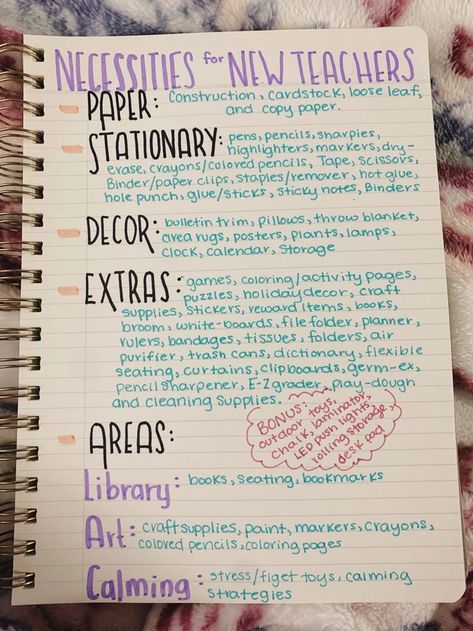 NECESSITIES for NEW TEACHERS
PAPER: Construction, cardstock, loose leaf,
and copy paper.
STATIONARY: pens, pencils, sharpies,
highlighters, markers, dry-
erase, crayons/colored pencils, Tape, Scissors,
Binder/paper clips, Staples/remover, hot glue,
hole punch, glue/sticks, sticky notes, Binders
DECOR: bulletin trim, Pillows, throw blanket,
area rugs, posters, plants, lamps,
clock, calendar, Storage
EXTRAS: games, coloring/activity pages,
puzzles, holiday decor, craft
supplies, stickers, reward items, books,
broom, white-boards, file folder, planner,
rulers, bandages, tissues, folders, air
purifier, trash cans, dictionary, flexible
seating, curtains, clipboards, germ-ex,
pencil sharpener, E-Z grader, play-dough
and cleaning supplies.
BONUS:
outdoor toys,
chalk, laminator,
LED push lights,
rolling storage,
desk pad
AREAS:
Library: books, seating, bookmarks
Art: craft supplies, paint, markers, crayons,
colored pencils, coloring pages
Calming: stress/figet toys, calming
strategies